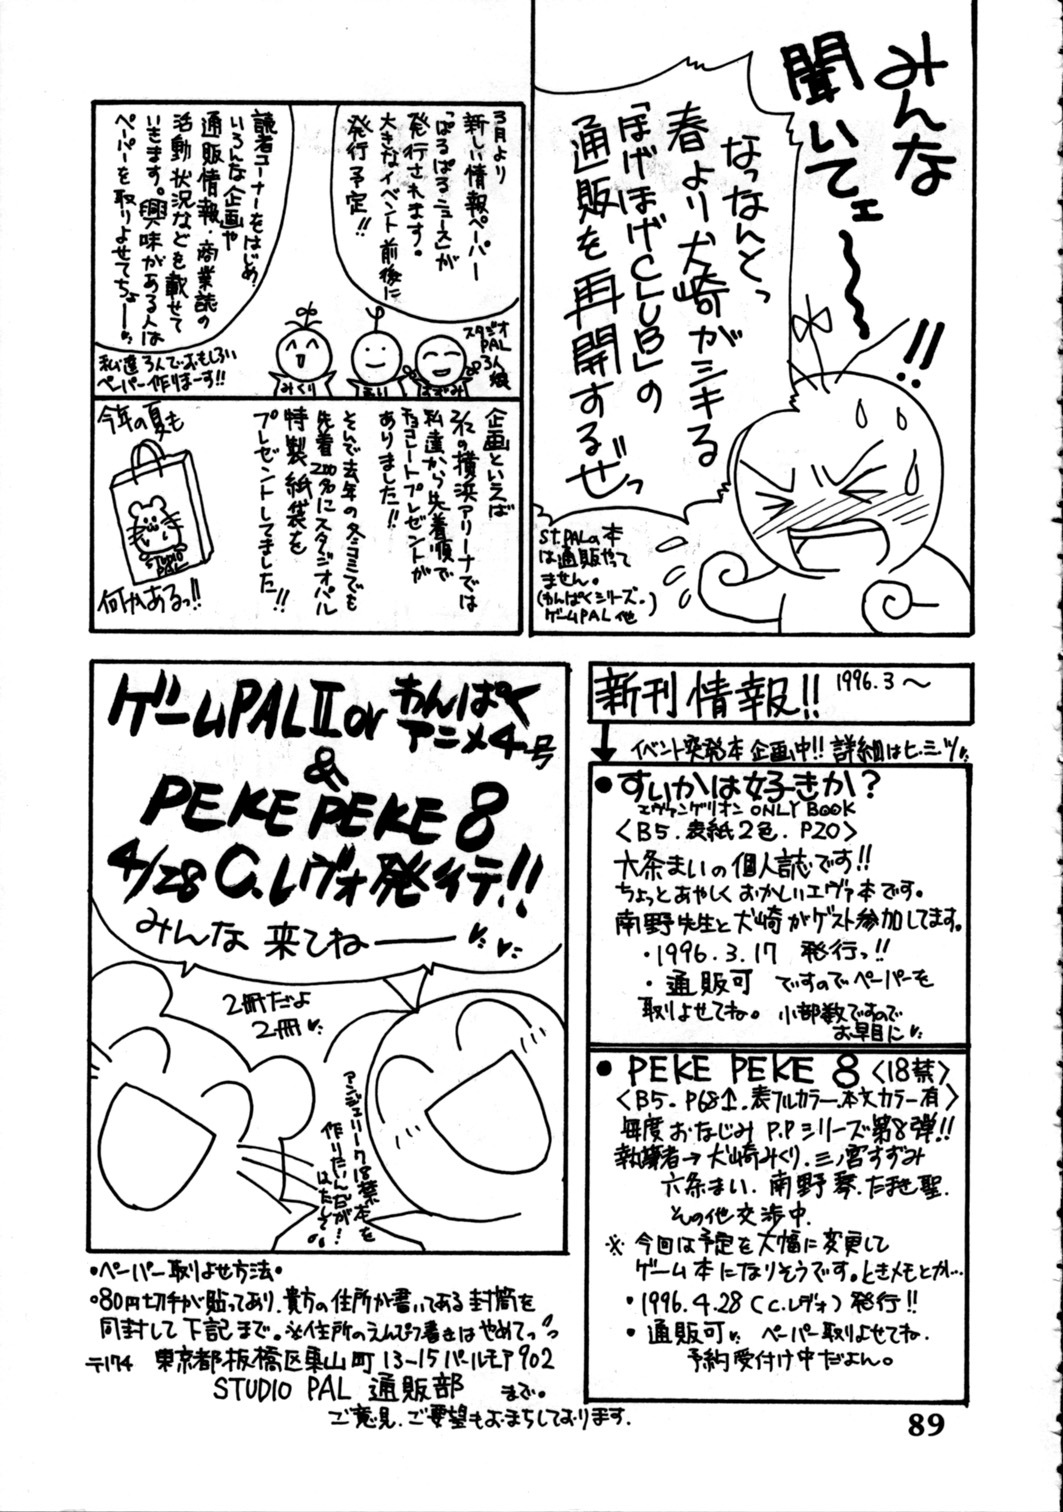 みんな
聞いてェ〜〜!!
なっなんとっ
春より犬崎がシキる
「ほげほげCLUB」の
通販を再開するぜっ
ST.PALの本
は通販やって
ません。
(わんぱくシリーズ。
ゲームPAL他)
3月より
新しい情報ペーパー
「ぱるぱるニュース」が
発行されます。
大きなイベント前後に
発行予定!!
読者コーナーをはじめ、
いろんな企画や
通販情報・商業誌の
活動状況などを載せて
いきます。興味がある人は
ペーパーを取りよせてちょーー
スタジオ
PAL
3人娘
みくり
まり
はずみ
私達3人でおもしろい
ペーパー作りまーす!!
企画といえば
3/2の横浜アリーナでは
私達から先着順で
チョコレートプレゼントが
ありました!!
そんで去年の冬コミでも
先着200名にスタジオパル
特製紙袋を
プレゼントしてました!!
今年の夏も
STUDIO
PAL
何かあるっ!!
新刊情報!! 1996.3〜
イベント突発本企画中!! 詳細はヒ・ミツ
●すいかは好きか?
エヴァンゲリオン ONLY BOOK
〈B5.表紙2色.P20〉
六条まいの個人誌です!!
ちょっとあやしくおかしいエヴァ本です。
南野先生と犬崎がゲスト参加してます。
・1996.3.17 発行っ!!
・通販可 ですのでペーパーを
取りよせてね。小部数ですので
お早目に
●PEKE PEKE 8〈18禁〉
〈B5.P68↑.表フルカラー.本文カラー有〉
毎度おなじみP.Pシリーズ第8弾!!
執筆者→犬崎みくり.三ノ宮すずみ
六条まい.南野琴.たませ聖.
その他交渉中.
※今回は予定を大幅に変更して
ゲーム本になりそうです。ときメモとか…
・1996.4.28(C.レヴォ)発行!!
・通販可 ペーパー取りよせてね.
予約受付け中だよん。
ゲームPALⅡor わんぱく
アニメ4号
&
PEKE PEKE 8
4/28 C.レヴォ発行!!
みんな来てねーーー
2冊だよ
2冊
アンジェリーク18禁本を
作りたいんだが!
はたして
•ペーパー取りよせ方法•
•80円切手が貼ってあり.貴方の住所が書いてある封筒を
同封して下記まで。※住所のえんぴつ書きはやめてっ
〒174 東京都板橋区東山町13-15パールモア902
STUDIO PAL 通販部 まで。
ご意見.ご要望もおまちしております.
89